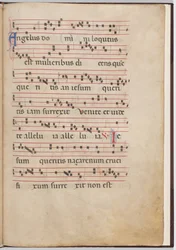 Angelus do mi ni locutus
est mulieribus di cens que
que ri tis an iesum queri
tis iam surrexit venite et vide
te allelu ia alle lu ia. Ie
sum queritis nazarenum cruci
fi xum surre xit non est